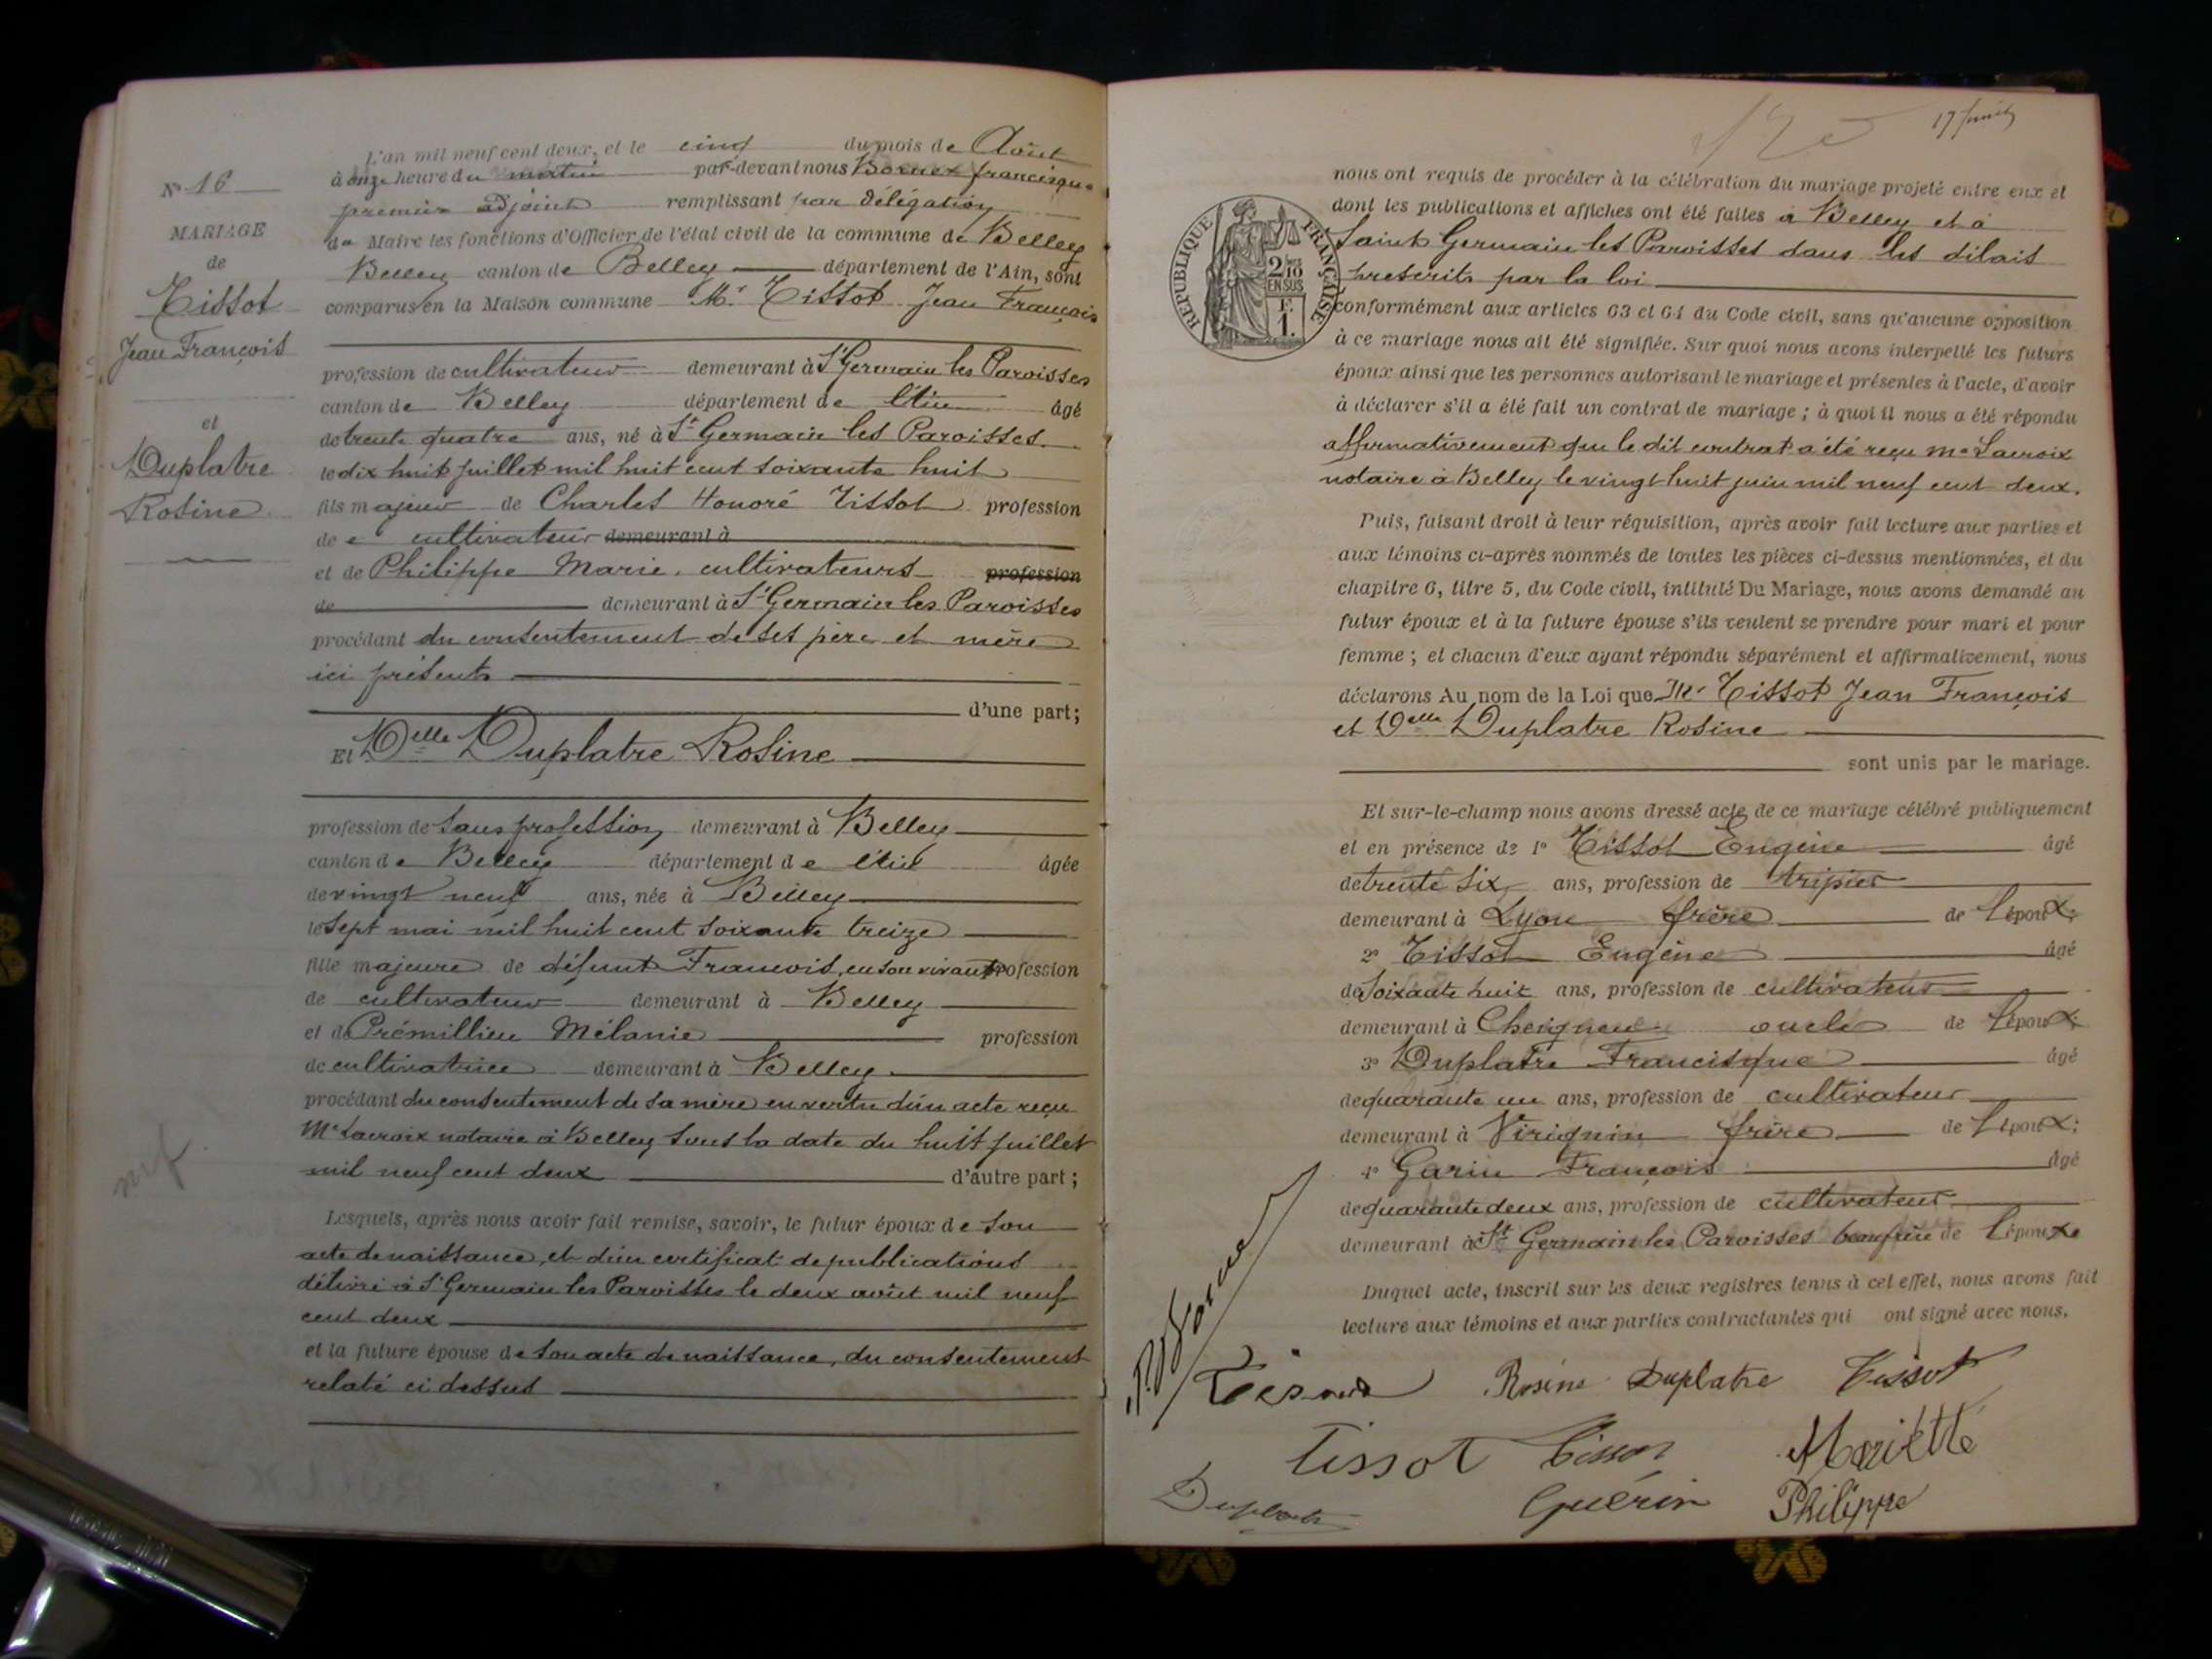 N° 16
MARIAGE
de
Tissot
Jean François
et
Duplatre
Rosine
L'an mil neuf cent deux, et le cinq du mois de Août
à onze heure du matin par-devant nous Bornex francisque
premier adjoint remplissant par délégation
de Maire les fonctions d'Officier de l'état civil de la commune de Belley
Belley canton de Belley département de l'Ain, sont
comparus en la Maison commune Mr Tissot Jean François
profession de cultivateur demeurant à St Germain les Paroisses
canton de Belley département de l'Ain âgé
de trente quatre ans, né à St Germain les Paroisses
le dix huit juillet mil huit cent soixante huit
fils majeur de Charles Honoré Tissot profession
de cultivateur demeurant à
et de Philippe Marie, cultivateurs profession
de demeurant à St Germain les Paroisses
procédant du consentement de ses père et mère
ici présents
d'une part;
Et Delle Duplatre Rosine
profession de sans profession demeurant à Belley
canton de Belley département de l'Ain âgée
de vingt neuf ans, née à Belley
le sept mai mil huit cent soixante treize
fille majeure de défunt François, en son vivant profession
de cultivateur demeurant à Belley
et de Prémillieu Mélanie profession
de cultivatrice demeurant à Belley
procédant du consentement de sa mère en vertu d'un acte reçu
Me Lacroix notaire à Belley sous la date du huit juillet
mil neuf cent deux d'autre part;
Lesquels, après nous avoir fait remise, savoir, le futur époux de son
acte de naissance, et d'un certificat de publications
délivré à St Germain les Paroisses le deux août mil neuf
cent deux
et la future épouse de son acte de naissance, du consentement
relaté ci dessus
nous ont requis de procéder à la célébration du mariage projeté entre eux et
dont les publications et affiches ont été faites à Belley et à
Saint Germain les Paroisses dans les délais
prescrits par la loi
RÉPUBLIQUE FRANÇAISE
2/10
EN SUS
F.
1.
conformément aux articles 63 et 64 du Code civil, sans qu'aucune opposition
à ce mariage nous ait été signifiée. Sur quoi nous avons interpellé les futurs
époux ainsi que les personnes autorisant le mariage et présentes à l'acte, d'avoir
à déclarer s'il a été fait un contrat de mariage; à quoi il nous a été répondu
affirmativement que le dit contrat a été reçu Me Lacroix
notaire à Belley le vingt huit juin mil neuf cent deux.
Puis, faisant droit à leur réquisition, après avoir fait lecture aux parties et
aux témoins ci-après nommés de toutes les pièces ci-dessus mentionnées, et du
chapitre 6, titre 5, du Code civil, intitulé Du Mariage, nous avons demandé au
futur époux et à la future épouse s'ils veulent se prendre pour mari et pour
femme; et chacun d'eux ayant répondu séparément et affirmativement, nous
déclarons Au nom de la Loi que Mr Tissot Jean François
et Delle Duplatre Rosine
sont unis par le mariage.
Et sur-le-champ nous avons dressé acte de ce mariage célébré publiquement
et en présence de 1° Tissot Eugène âgé
de trente six ans, profession de tripier
demeurant à Lyon frère de l'époux;
2° Tissot Eugène âgé
de soixante huit ans, profession de cultivateur
demeurant à Cheignieu oncle de l'époux;
3° Duplatre Francisque âgé
de quarante un ans, profession de cultivateur
demeurant à Virignin frère de l'épouse;
4° Garin François âgé
de quarante deux ans, profession de cultivateur
demeurant à St Germain les Paroisses beau frère de l'époux
Duquel acte, inscrit sur les deux registres tenus à cet effet, nous avons fait
lecture aux témoins et aux parties contractantes qui ont signé avec nous.
Rosine Duplatre Tissot
Tissot Tissot Mariette
Duplatre Guérin Philippe